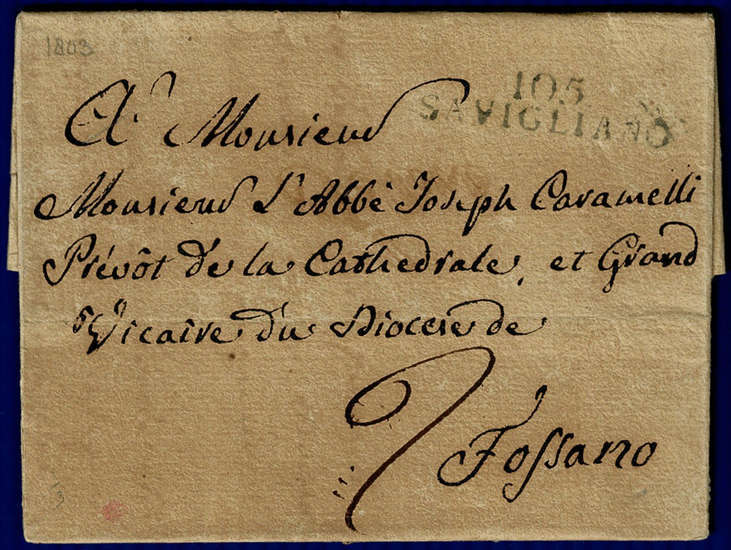 1803
105
SAVIGLIANO
A Monsieur
Monsieur L'Abbé Joseph Caramelli
Prévôt de la Cathedrale, et Grand
Vicaire du Diocese de
Fossano